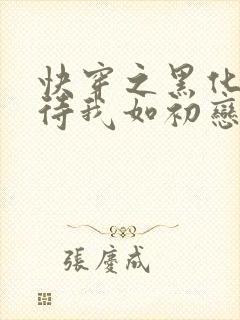 快穿之黑化
待我如初戀
張慶成